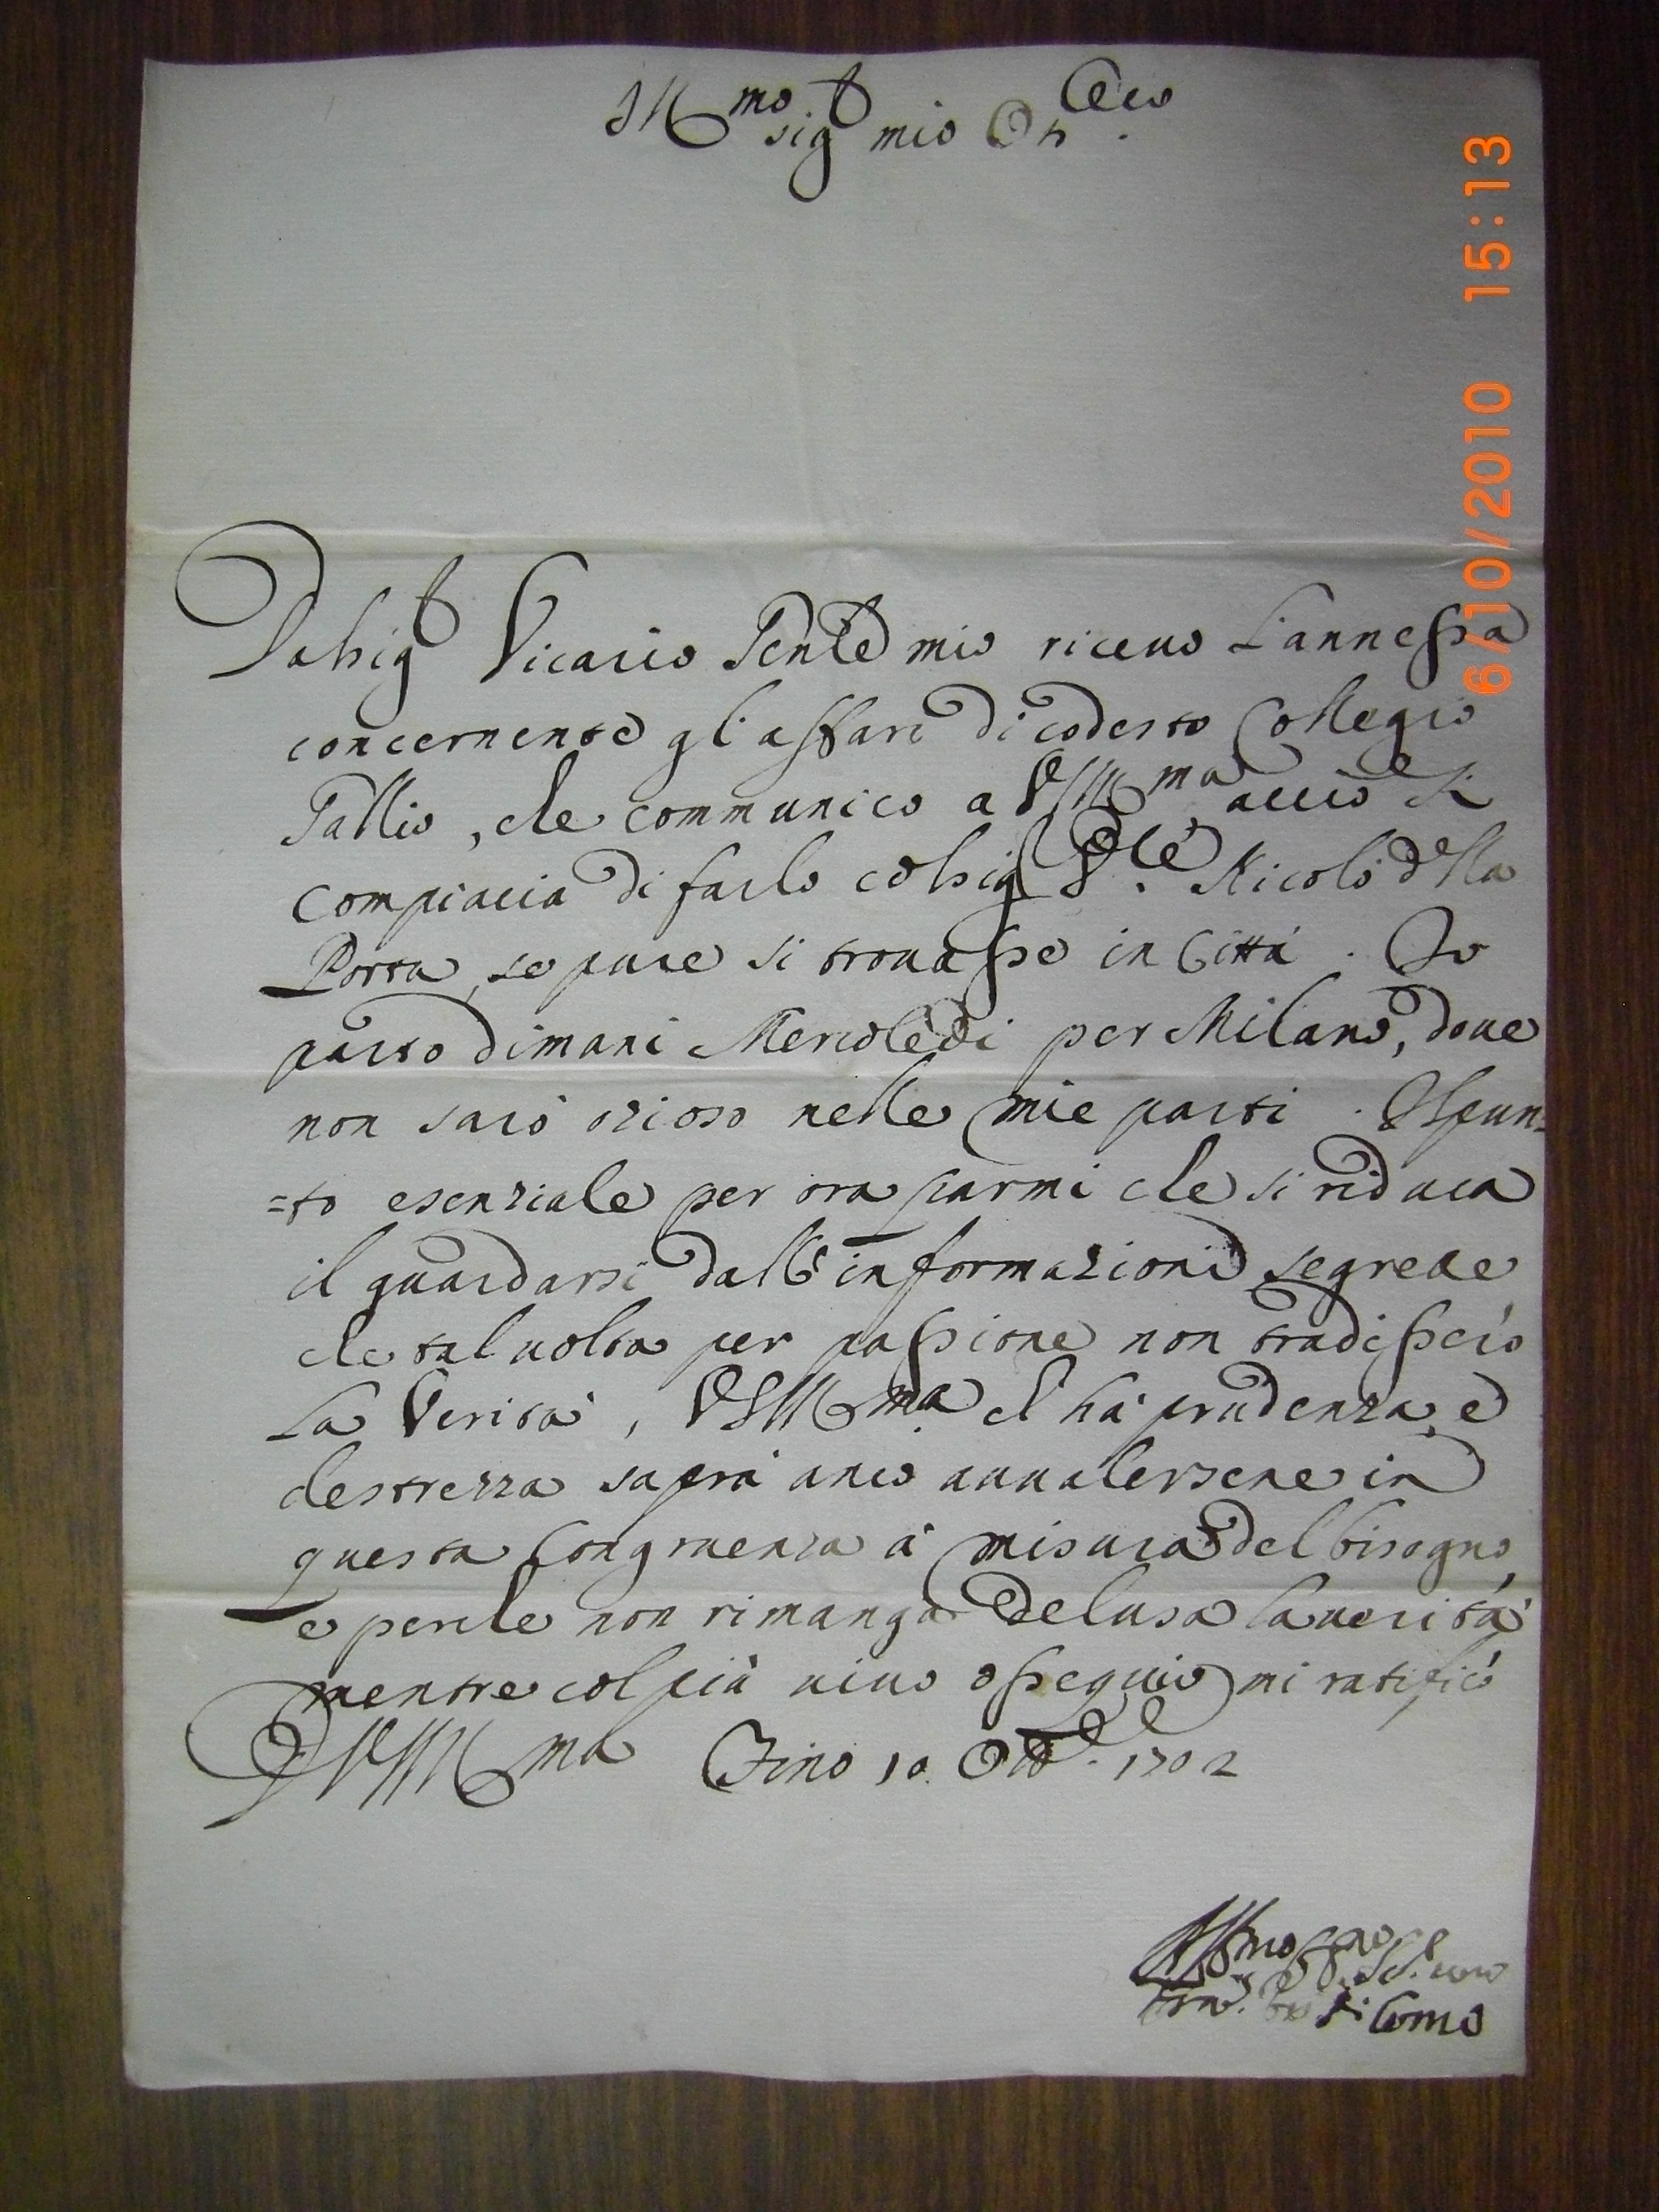 Ill.mo Sig.r mio
Dal Sig.r Vicario Gen.le mio riceuo L'annessa
concernente gl'affari di codesto Collegio
Gallio, che communico a V.S. Ill.ma acciò si
compiaccia di farlo col Sig.r Nicolò della
Porta, se pure si trouasse in Città. Io
parto dimani Mercoledi per Milano, doue
non sarò ozioso nelle mie parti. Il pun=
=to esenziale per ora parmi che si riduca
il guardarsi dall'informazioni segrete
che tal uolta per passione non tradisserò
La Verità, V.S. Ill.ma ch'hà prudenza, e
destrezza saprà anco auualersene in
questa Congruenza à misura del bisogno,
e perche non rimanga delusa la uerità
mentre col più uiuo osseguio mi ratificò
D V.S. Ill.ma Zino 10. Ott.e 1702
di Como
6/10/2010 15:13